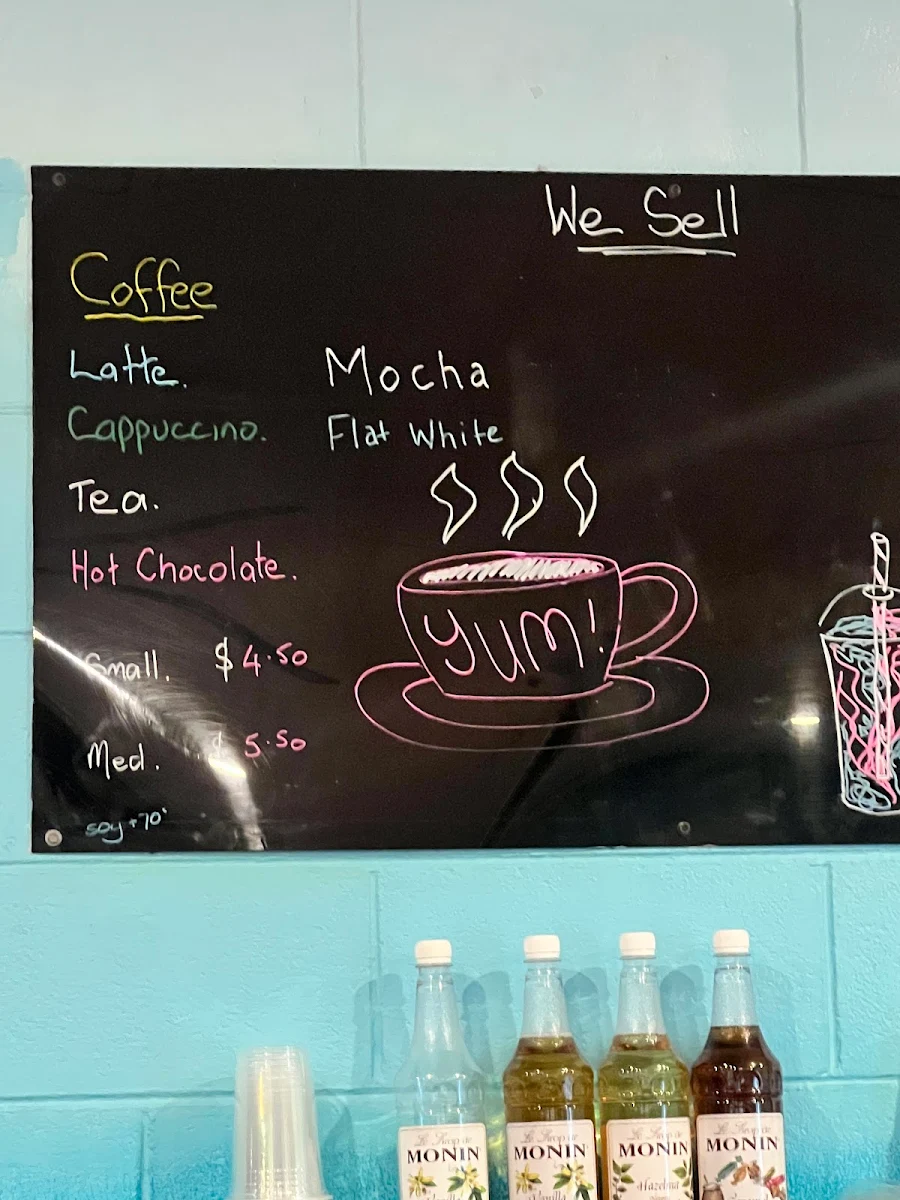 We Sell
Coffee
Latte.
Cappuccino.
Tea.
Hot Chocolate.
Mocha
Flat White
YUM!
Small. $4.50
Med. $5.50
soy + 70
Le Sirop de
MONIN
Le Sirop de
MONIN
Vanilla
Le Sirop de
MONIN
Hazelnut
Le Sirop de
MONIN